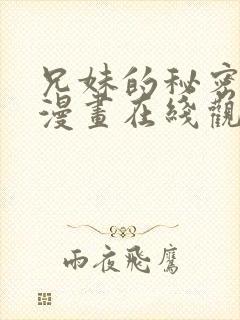 兄妹的秘密
漫畫在綫觀
雨夜飛鷹